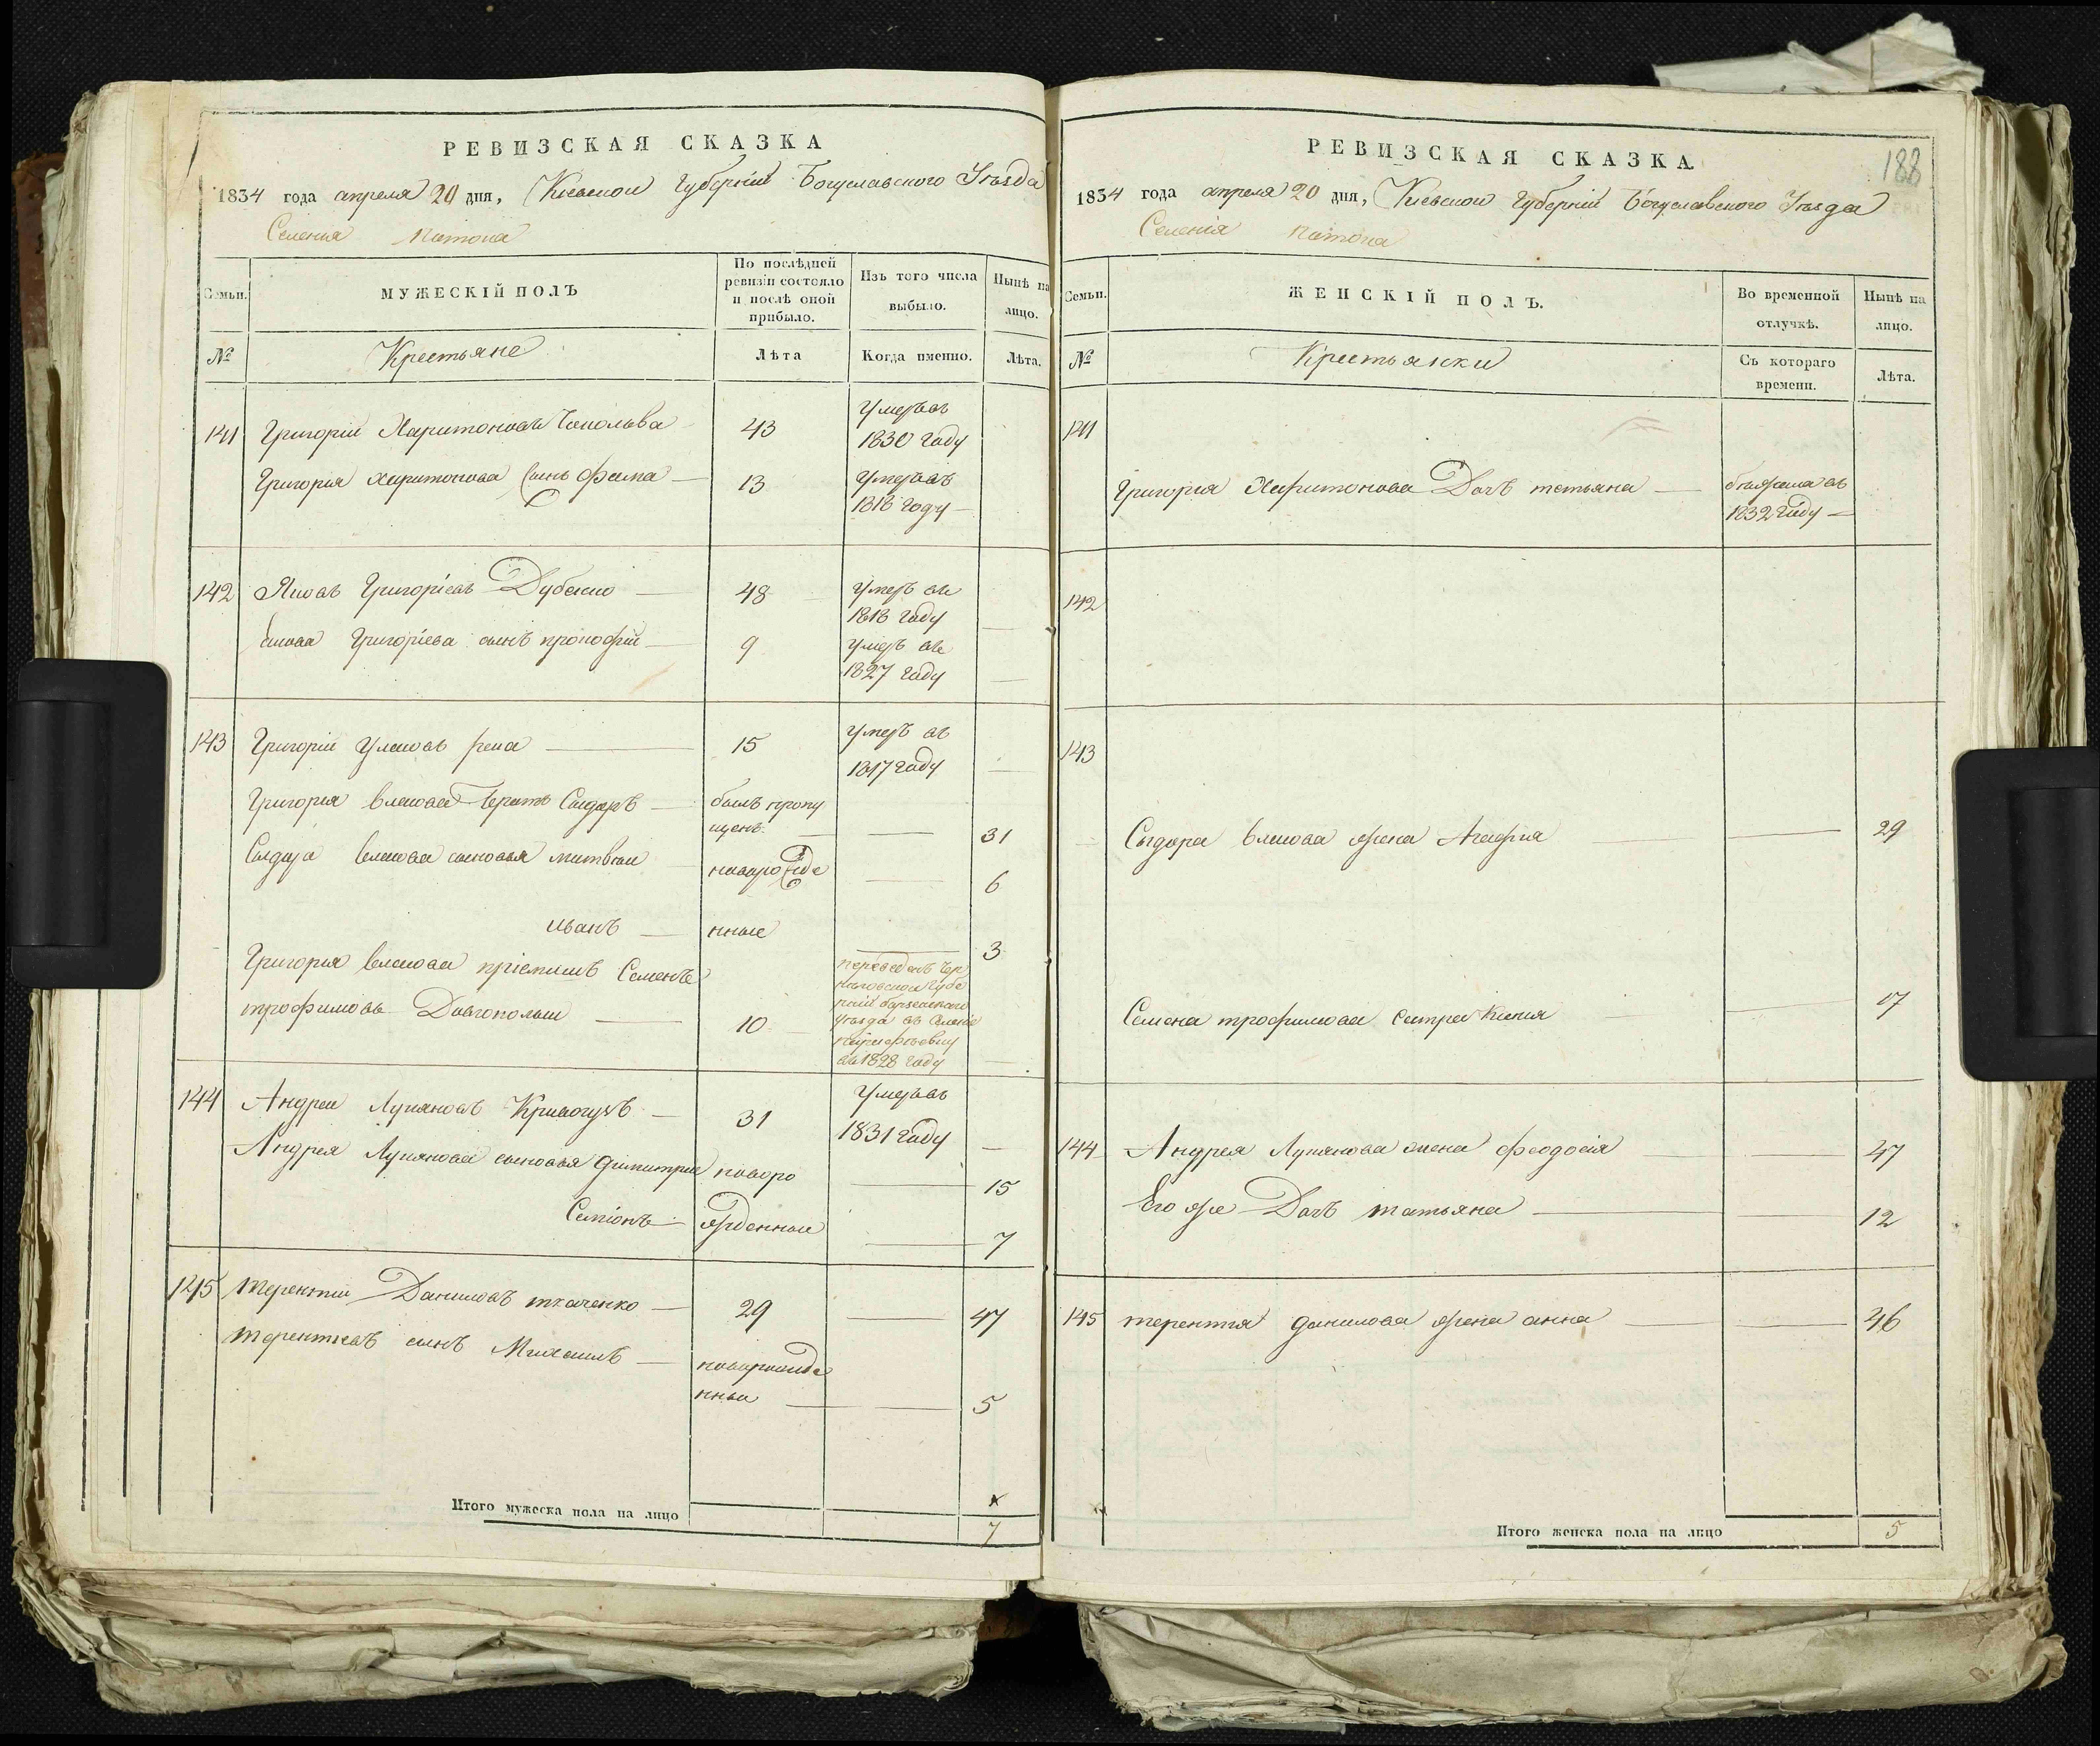 РЕВИЗСКАЯ СКАЗКА
1834 года апреля 20 дня, Кіевской Губерніи Богуславского Уѣзда
Селенія
МУЖЕСКІЙ ПОЛЪ
Семьи.
По послѣдней ревизіи состояло и послѣ оной прибыло.
Изъ того числа выбыло.
Нынѣ на лицо.
№
Крестьяне
Лѣта
Когда именно.
Лѣта.
141 Григорій Харитоновъ 43 Умеръ въ
1830 году
Григорія харитонова сынъ фома 13 Умеръ въ
1818 году
142 Яковъ Григоріевъ 48 умеръ въ
1818 году
Григоріева сынъ прокофій 9 умеръ въ
1827 году
143 Григорій 15 умеръ въ
1817 году
Григорія власова братъ Сидоръ былъ пропу
щенъ 31
Сидора власова сыновья новорожде 6
иванъ нные 3
Григорія власова пріемышъ Семенъ переведенъ Чер
ниговской Губе
рніи
трофимовъ 10 уѣзда въ Селеніе
въ 1828 году
144 Андрей Лукяновъ 31 Умеръ въ
1831 году
Андрея Лукянова сыновья димитрій новоро 15
Семіонъ жденные 7
145 терентій Даниловъ ткаченко 29 47
терентіевъ сынъ Михаилъ новорожде
нный 5
Итого мужеска пола на лицо 7
РЕВИЗСКАЯ СКАЗКА
188
1834 года апреля 20 дня, Кіевской Губерніи Богуславского Уѣзда
Селенія
Семьи.
ЖЕНСКІЙ ПОЛЪ.
Во временной отлучкѣ.
Нынѣ на лицо.
№
Крестьянки
Съ котораго времени.
Лѣта.
141
Григорія Харитонова Дочъ тетьяна бѣжала въ
1832 году
142
143
Сидора власова жена Агафія 29
Семена трофимова сестра 17
144 Андрея Лукянова жена феодосія 47
Его же Дочъ татьяна 12
145 терентія данилова жена анна 46
Итого женска пола на лицо 5